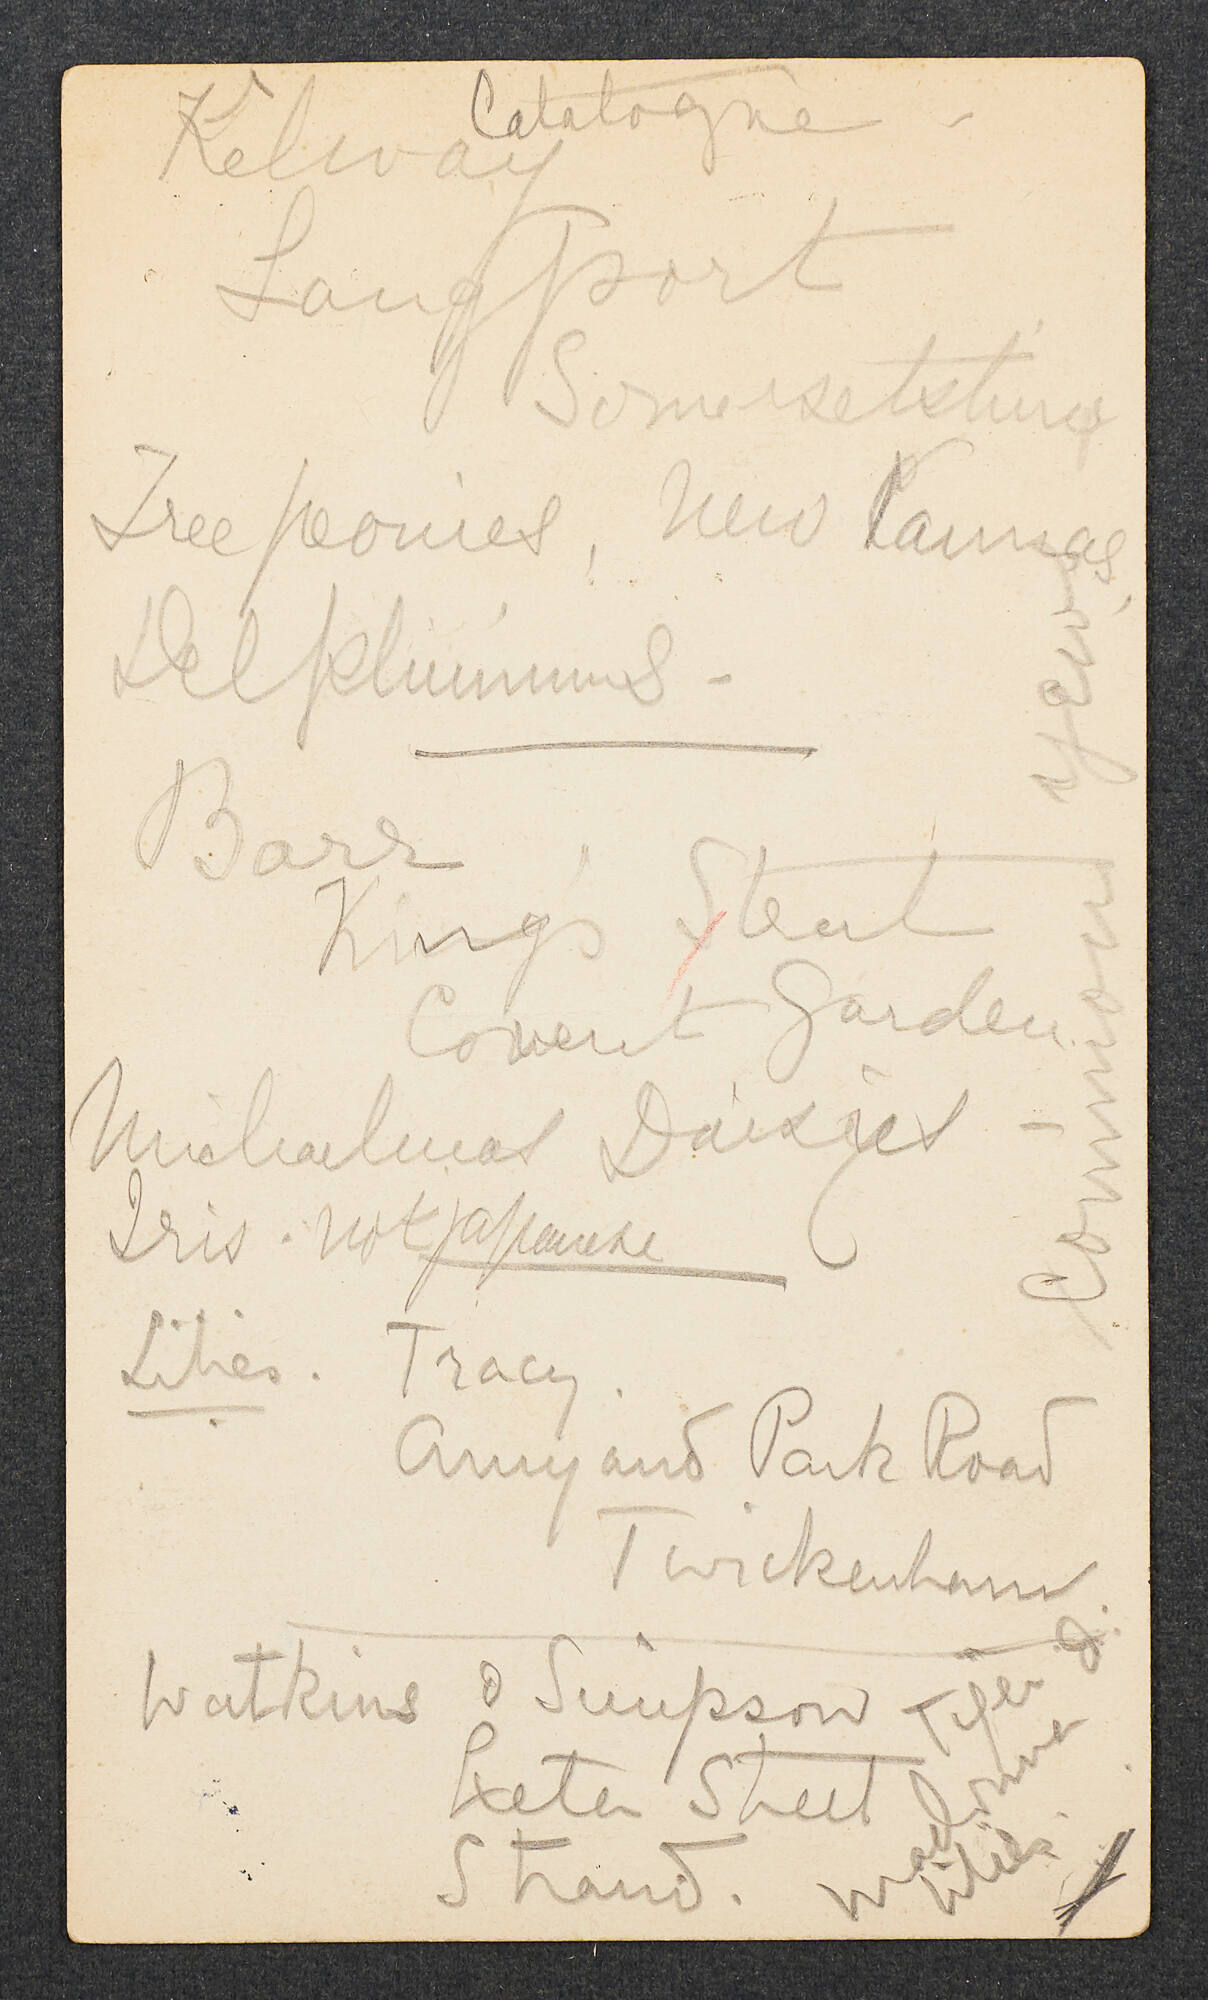 Catalogue -
Kelway
Langport
Somersetshire
Tree peonies, New Cannas,
Delphiniums -
Barr
King's Street
Covent Garden
Michaelmas Daisies -
Iris. not japanese
Lilies. Tracy.
Amyand Park Road
Twickenham
Watkins & Simpson
Exeter Street
Strand.
Common yews
Tiger &
Madonna
lilies.